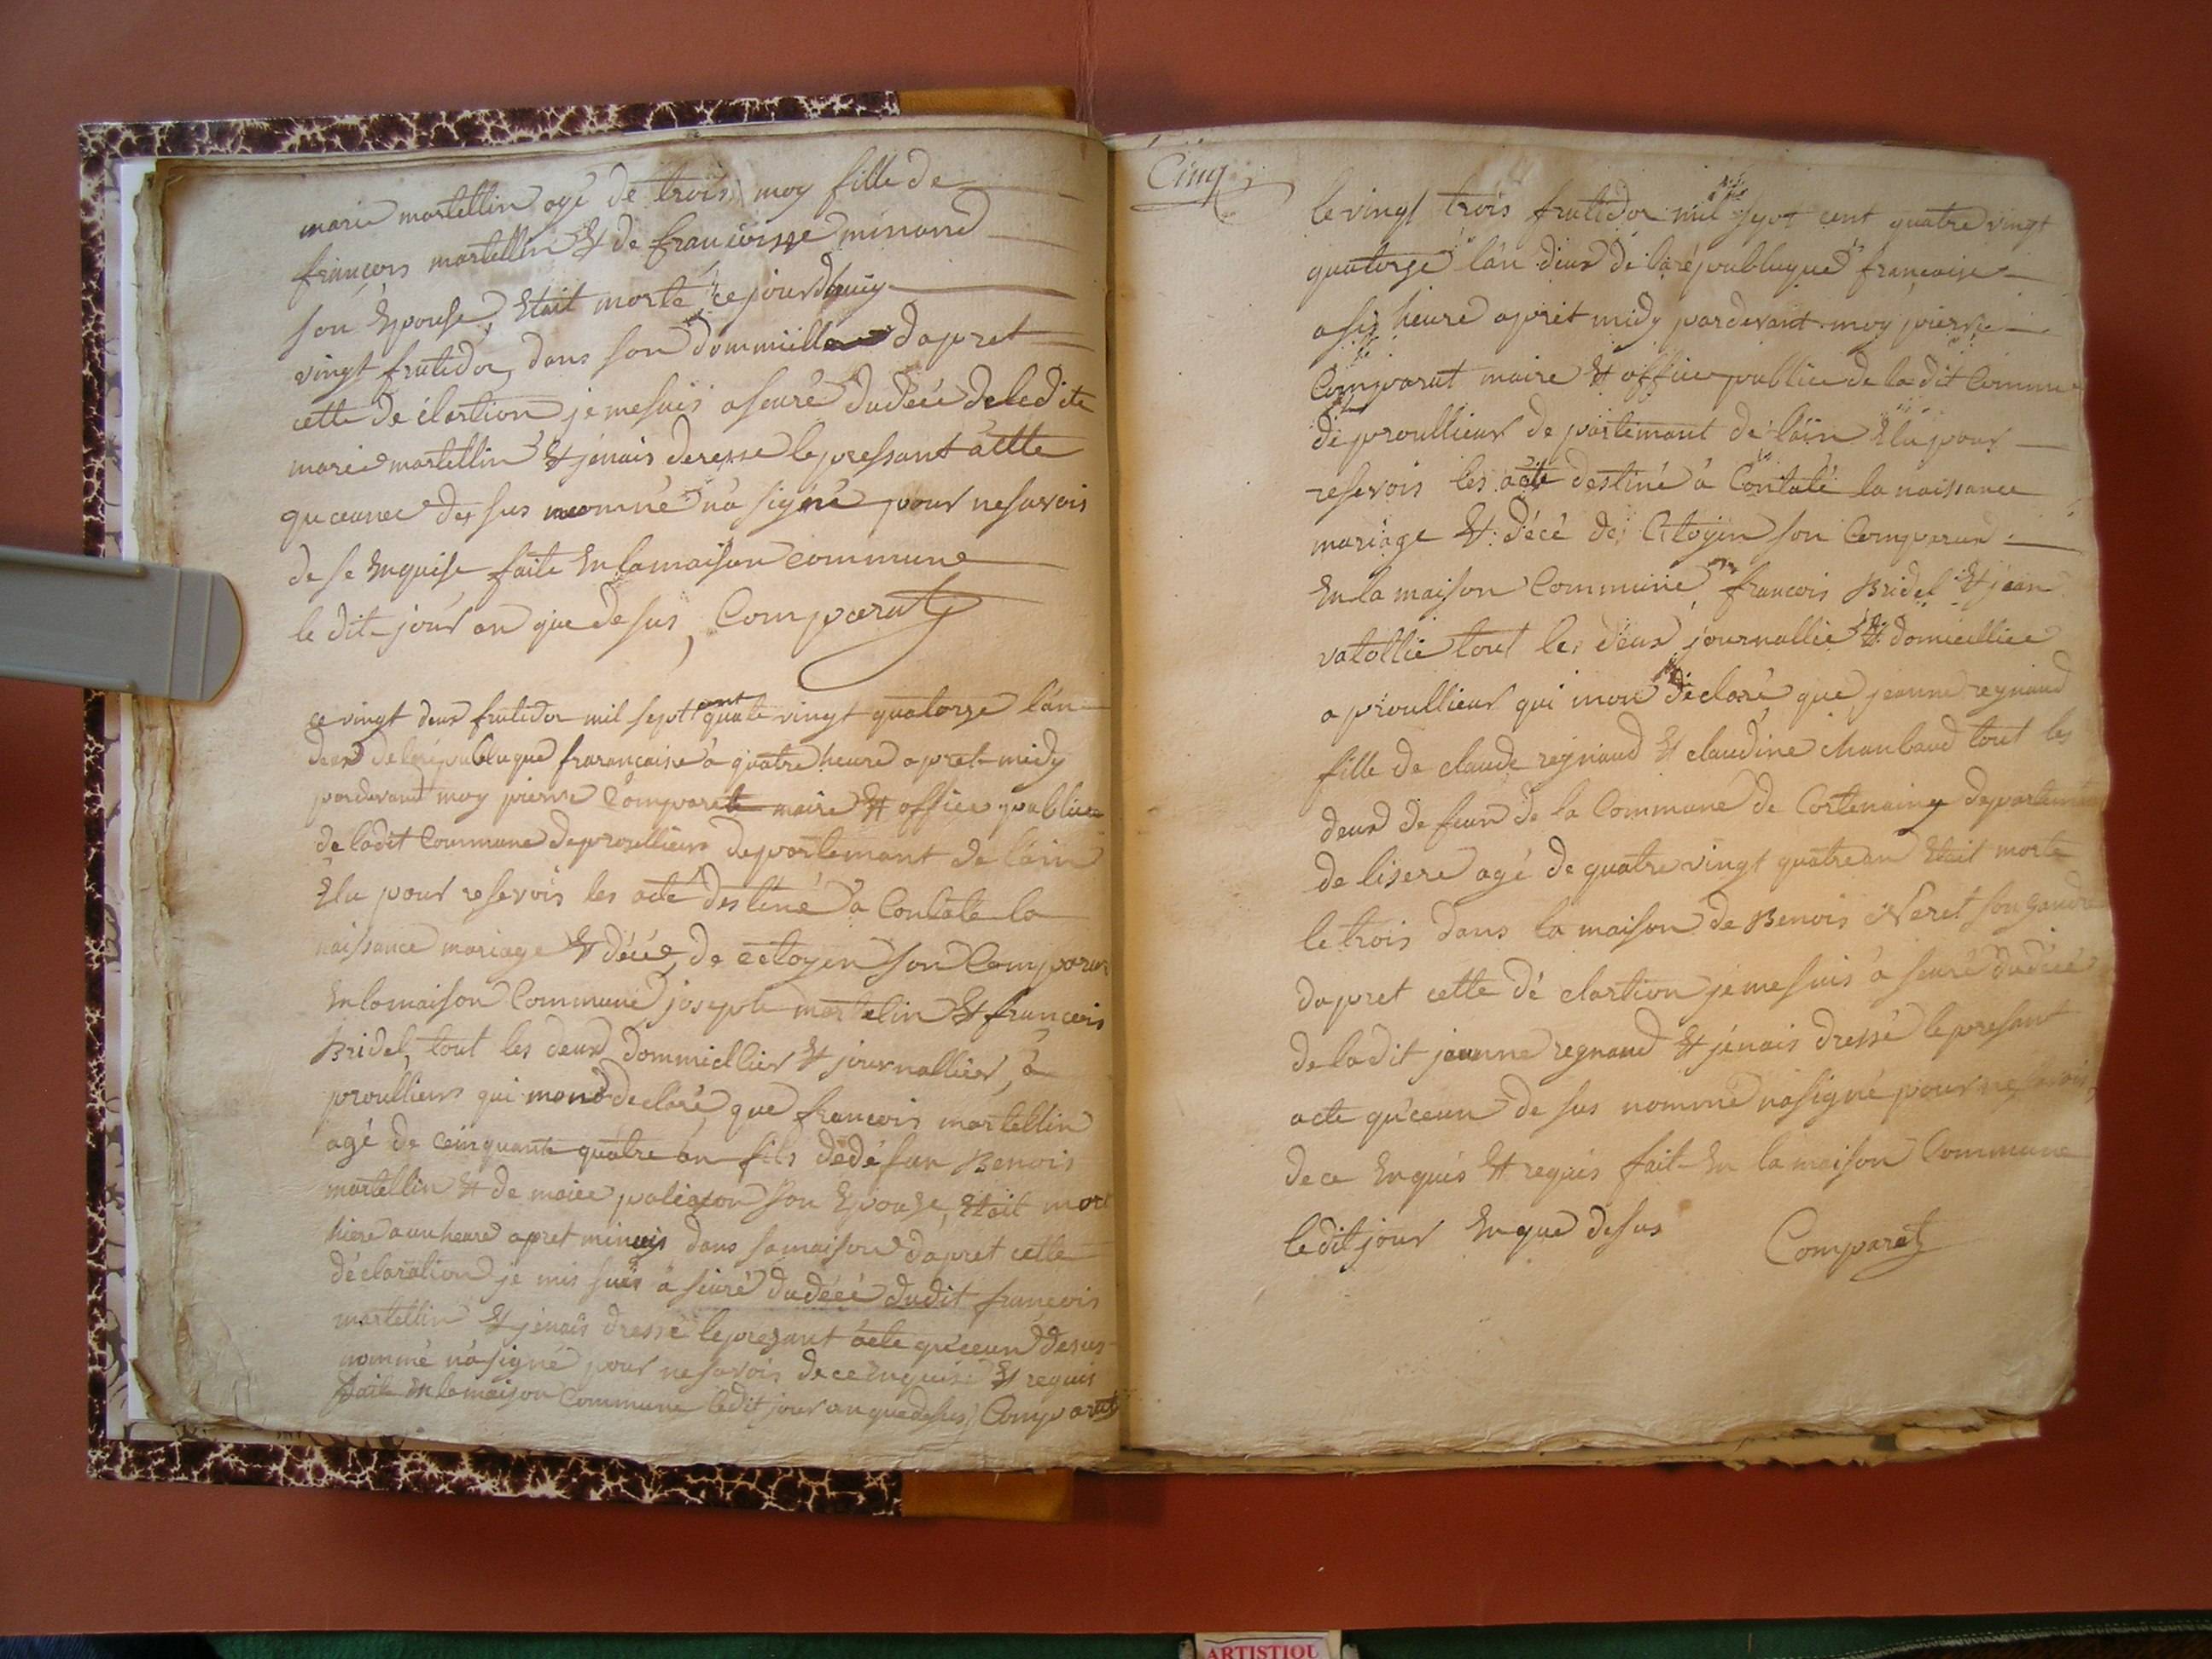 marie martellin agé de trois moy fille de
françois martellin & de francoisse minand
son Epouse, Etait morte ce jourdhuy
vingt frutidor dans son dommicille dapret
cette de clartion je me suis aseuré du décé de ledite
marie martellin & jénais deresse le pressant actte
que ceunee des sus nommé na signé pour ne savois
de se Enquise faite En la maison commune
le dit jour an que de sus, Comparat
ce vingt deux frutidor mil sept cent quate vingt quatorze lán
deux de la républuque frarançaise à quatre heure apret midy
pardevant moy pierre Comparet maire & office publice
de la dit Commune de proullieux departemant de láin
Elu pour resevois les acte destiné à Contate la
naissance mariage & décé de citoyen son Comparus
En la maison Commune josepte martelin & francois
Bridel, tout les deux dommicllier & journallier, à
proullieux qui mond declaré que francois martellin
agé de Cinquante quatre an fils dedéfun Benois
martellin & de maiee palicon son Epouse, Etait mort
hiere a un heure apret minuis dans sa maison dapret cette
déclaration je mis suis a seuré du décé dudit francois
martellin & jénais dressé le prezant acte qu'ceun desus
nommé ná signé pour ne savois de ce Enquise & requis
faite En la maison Commune le dit jour an que desus, Comparat
Cinq
le vingt trois frutidor mil sept cent quatre vingt
quatorze lán deux de la républuque francaise
a sis heure apret midy pardevant moy pierre
Comparat maire & office publice de la dit Commune
de proullieux de partemant de láin Elu pour
resevois les acte destiné à Contaté la naissance
mariage & décé de Citoyen son Comparus
En la maison Commune francois Bridel & jean
vatollie tout les deux journallié & domicillice
a proullieux qui mon déclaré que jeanne regnaud
fille de claude regnaud & claudine chanbaud tout les
deux de feun de la Commune de Cortenaing departement
de lisere agé de quatre vingt quatre an Etait morte
le trois dans la maison de Benois Neret son gandre
dapret cette dé clartion je me suis a seuré du décé
de la dit jeanne regnaud & jénais dressé le presant
acte qu'ceun de sus nommé na signé pour ne savois
de ce Enquis & requis fait En la maison Commune
le dit jour En que desus Comparat
ARTISTIQU